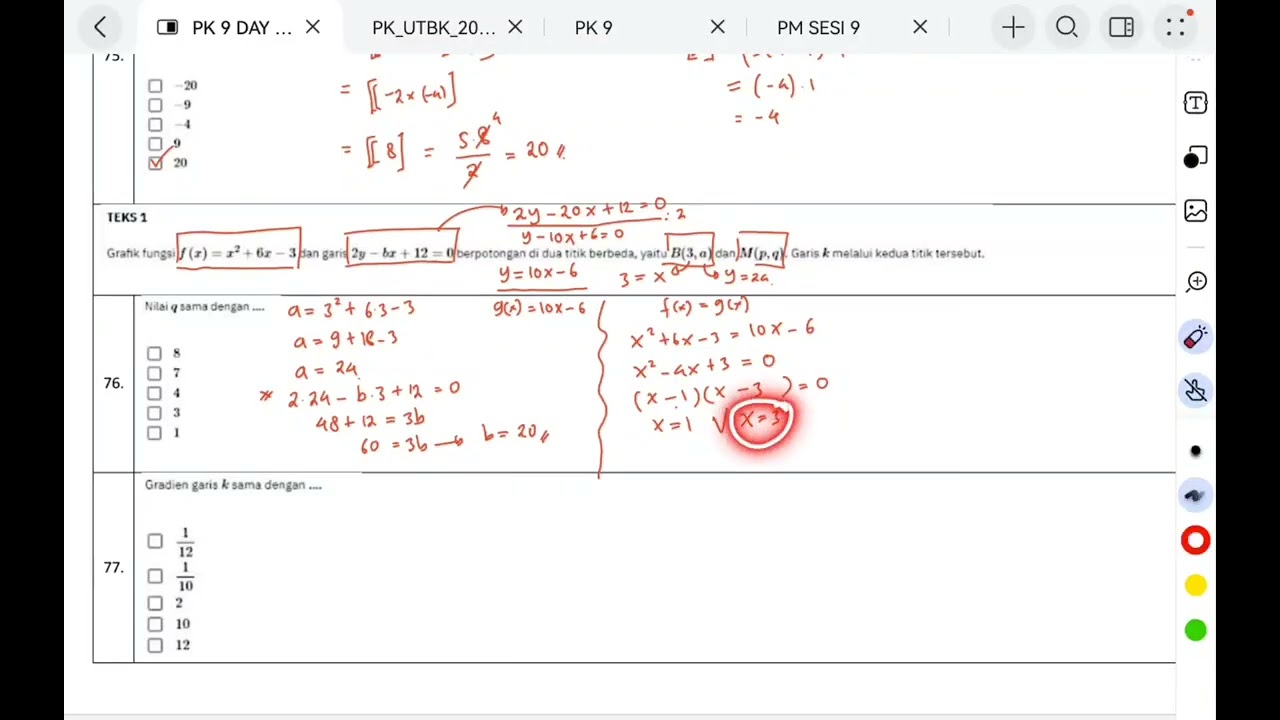 PK 9 DAY ...
PK_UTBK_20...
PK 9
PM SESI 9
75.
-20
-9
-4
9
20
= ⟦-2 × (-4)⟧
= ⟦8⟧ = 5·8/2 = 20 //
4
= (-4) . 1
= -4
TEKS 1
2y - 20x + 12 = 0 : 2
y - 10x + 6 = 0
Grafik fungsi f(x) = x² + 6x − 3 dan garis 2y − bx + 12 = 0 berpotongan di dua titik berbeda, yaitu B(3, a) dan M(p, q). Garis k melalui kedua titik tersebut.
y = 10x - 6
3 = x
y = 24
76.
Nilai q sama dengan ....
8
7
4
3
1
a = 3² + 6.3 - 3
a = 9 + 18 - 3
a = 24
* 2.24 - b.3 + 12 = 0
48 + 12 = 3b
60 = 3b → b = 20 //
g(x) = 10x - 6
f(x) = g(x)
x² + 6x - 3 = 10x - 6
x² - 4x + 3 = 0
(x - 1)(x - 3) = 0
x = 1 V x = 3
77.
Gradien garis k sama dengan ....
1/12
1/10
2
10
12